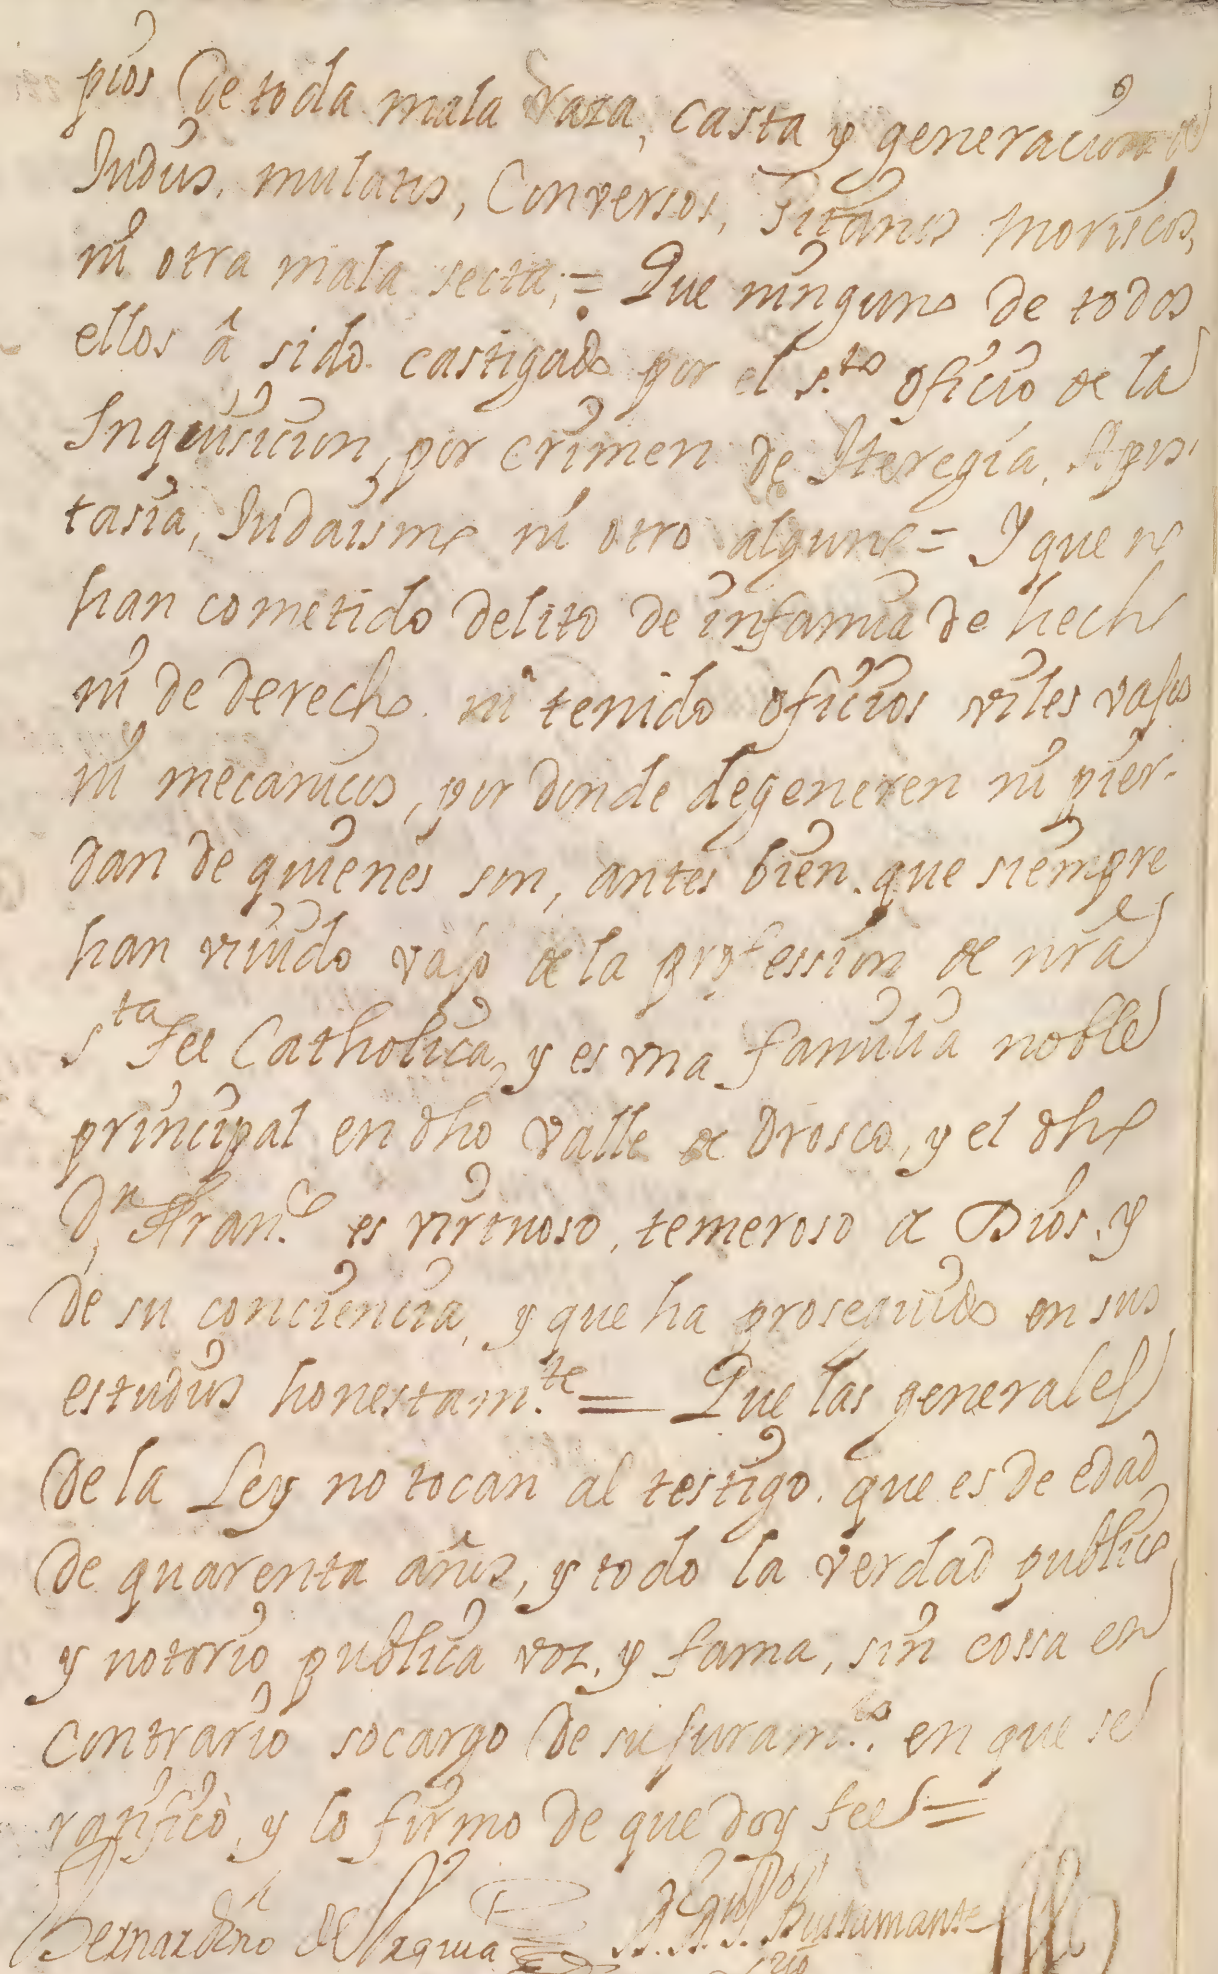 pios de toda mala raza, casta y generacion de
Judios, mulatos, Conversos, Jitanos Moriscos,
ni otra mala secta; = Que ninguno de todos
ellos â sido castigado por el s.to oficio de la
Inquisicion, por crimen de Heregia, Apos-
tasia, Judaismo ni otro alguno = Y que no
han cometido delito de infamia de hecho
ni de derecho ni tenido oficios viles vajos
ni mecanicos, por donde degeneren ni pier-
dan de quienes son, antes bien que siempre
han vivido vajo de la profession de nrâ
s.ta fee Catholica, y es vna familia noble
principal en dho valle de Orosco, y el dho
Dn Fran.co es virtuoso, temeroso de Dios y
de su conciencia, y que ha proseguido en sus
estudios honestam.te = Que las generales
de la Ley no tocan al testigo. que es de edad
de quarenta años, y todo la verdad publico
y notorio publica voz, y fama, sin cossa en
contrario socargo de su juram.to en que se
ratificò, y lo firmo de que doy fee =
Bernardino de Bustamante